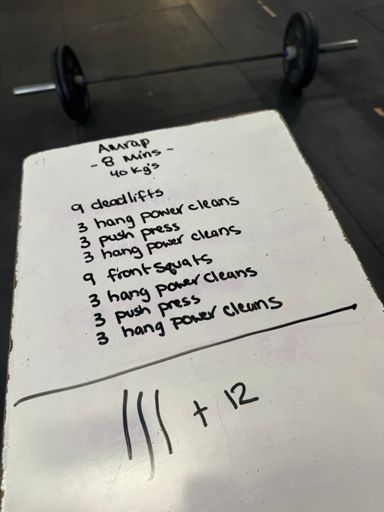 Amrap
- 8 mins -
40 kg's
9 deadlifts
3 hang power cleans
3 push press
3 hang power cleans
9 front squats
3 hang power cleans
3 push press
3 hang power cleans
||| + 12